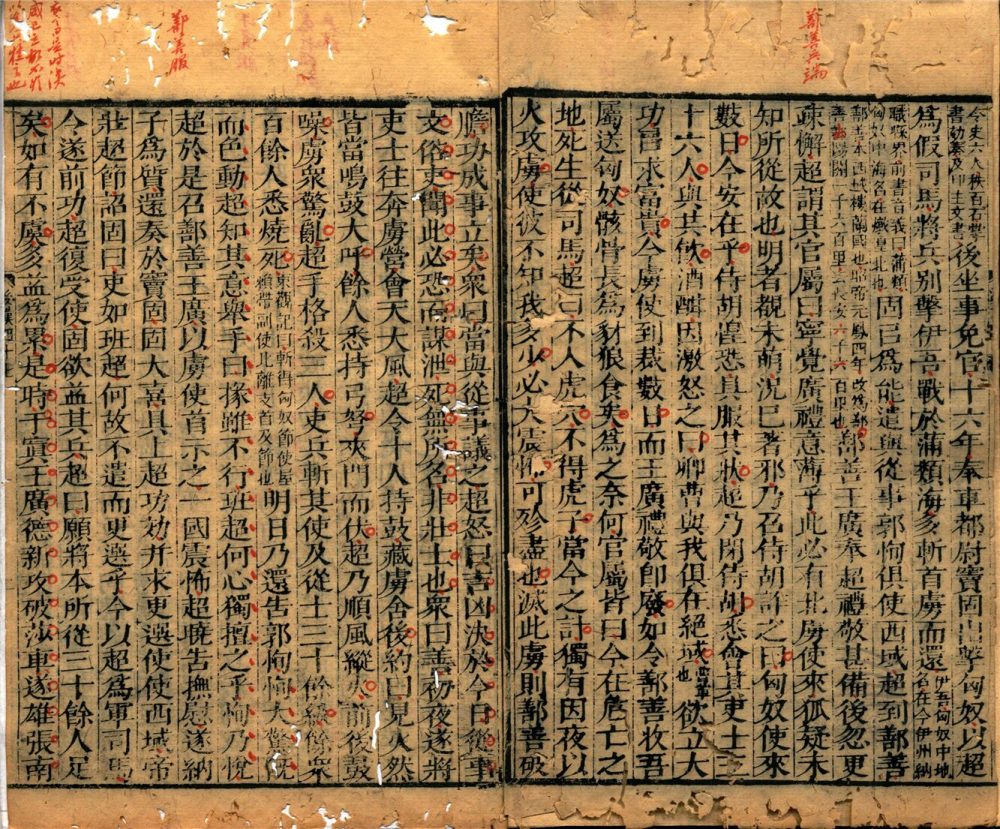 鄯善兵端
令史六人秩百石掌
書劾奏及印主文書
後坐事免官十六年奉車都尉竇固出擊匈奴以超
爲假司馬將兵别擊伊吾戰於蒲類海多斬首虜而還
伊吾匈奴中地
名在今伊州納
職縣界前書音義曰蒲類
匈奴中海名在燉皇北也
固㠯爲能遣與從事郭恂俱使西域超到鄯善
鄯善本西域樓蘭國也昭帝元鳳四年改爲鄯
善去陽關一千六百里去長安六千一百里也
鄯善王廣奉超禮敬甚備後忽更
疎懈超謂其官屬曰寧覺廣禮意薄乎此必有北虜使來狐疑未
知所從故也明者覩未萌況已著邪乃召侍胡詐之曰匈奴使來
數日今安在乎侍胡惶恐具服其狀超乃閉侍胡悉會其吏士三
十六人與共飲酒酣因激怒之曰卿曹與我俱在絕域
曹輩
也
欲立大
功㠯求富貴今虜使到裁數日而王廣禮敬即廢如令鄯善收吾
屬送匈奴骸骨長爲豺狼食矣爲之奈何官屬皆曰今在危亡之
地死生從司馬超曰不入虎穴不得虎子當今之計獨有因夜以
火攻虜使彼不知我多少必大震怖可殄盡也滅此虜則鄯善破
鄯善服
膽功成事立矣衆曰當與從事議之超怒曰吉凶決於今日從事
文俗吏聞此必恐而謀泄死無所名非壯士也衆曰善初夜遂將
吏士往奔虜營會天大風超令十人持鼓藏虜舍後約曰見火然
皆當鳴鼓大呼餘人悉持弓弩夾門而伏超乃順風縱火前後鼓
噪虜衆驚亂超手格殺三人吏兵斬其使及從士三十餘級餘衆
百餘人悉燒死
東觀記曰斬得匈奴節使屋
賴帶副使比離支首及節也
明日乃還告郭恂恂大驚旣
而色動超知其意舉手曰掾雖不行班超何心獨擅之乎恂乃悅
超於是召鄯善王廣以虜使首示之一國震怖超曉告撫慰遂納
子爲質還奏於竇固固大喜具上超功効并求更選使使西域帝
壯超節詔固曰吏如班超何故不遣而更選乎今以超爲軍司馬
令遂前功超復受使固欲益其兵超曰願將本所從三十餘人足
矣如有不虞多益爲累是時于窴王廣德新攻破莎車遂雄張南